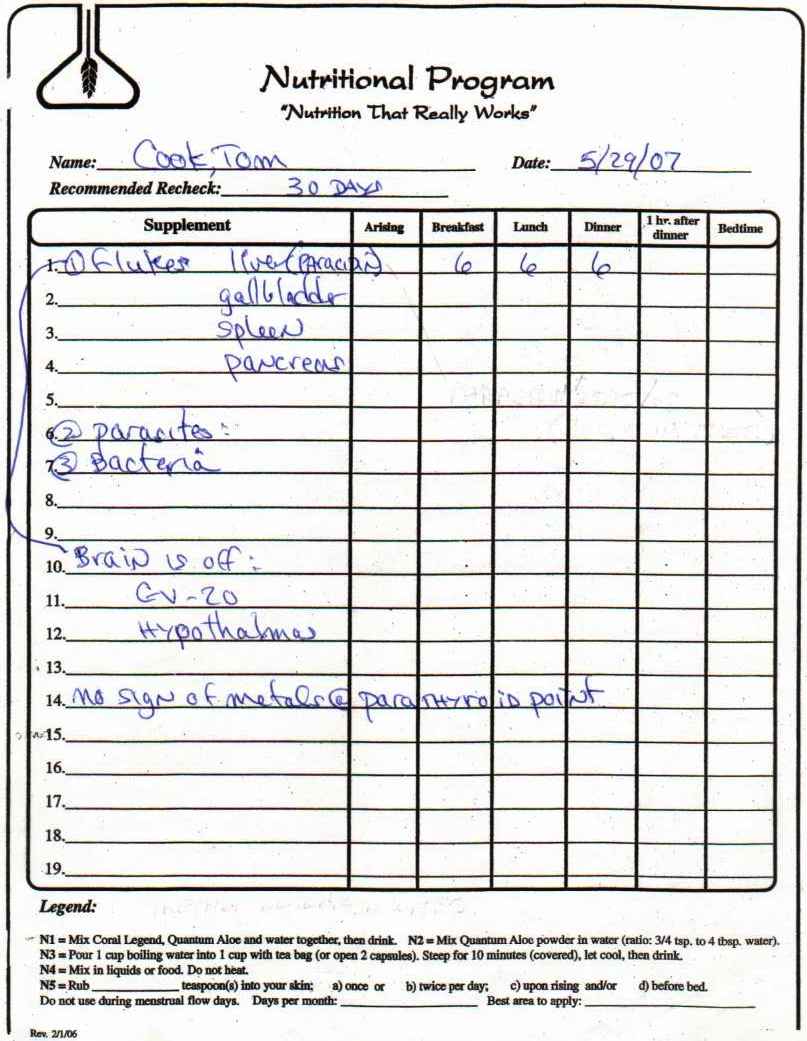 Nutritional Program
"Nutrition That Really Works"
Name: Cook, Tom Date: 5/29/07
Recommended Recheck: 30 DAYS
Supplement Arising Breakfast Lunch Dinner 1 hr. after dinner Bedtime
1. ① Flukes liver (Paracidin) 6 6 6
2. gallbladder
3. spleen
4. pancreas
5.
6. ② parasites:
7. ③ Bacteria
8.
9.
10. Brain is off:
11. GV-20
12. Hypothalmas
13.
14. no sign of metals @ parathyroid point
15.
16.
17.
18.
19.
Legend:
N1 = Mix Coral Legend, Quantum Aloe and water together, then drink. N2 = Mix Quantum Aloe powder in water (ratio: 3/4 tsp. to 4 tbsp. water).
N3 = Pour 1 cup boiling water into 1 cup with tea bag (or open 2 capsules). Steep for 10 minutes (covered), let cool, then drink.
N4 = Mix in liquids or food. Do not heat.
N5 = Rub ______ teaspoon(s) into your skin; a) once or b) twice per day; c) upon rising and/or d) before bed.
Do not use during menstrual flow days. Days per month: ______ Best area to apply: ______
Rev. 2/1/06